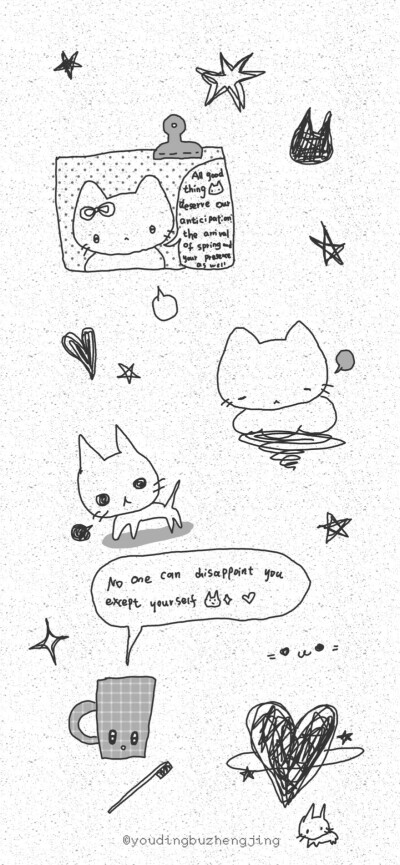 All good
thing
deserve our
anticipation
the arrival
of spring and
your presence
as well
No one can disappoint you
except yourself
©youdingbuzhengjing